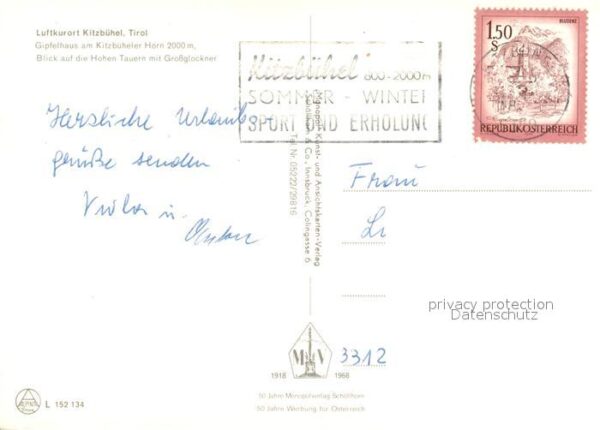 Luftkurort Kitzbühel, Tirol
Gipfelhaus am Kitzbüheler Horn 2000 m,
Blick auf die Hohen Tauern mit Großglockner
Kitzbühel 800-2000m
SOMMER - WINTER
SPORT UND ERHOLUNG
1.50
S
BLUDENZ
REPUBLIK ÖSTERREICH
Herzliche Urlaubs-
grüße senden
u.
Monopol Kunst- und Ansichtskarten-Verlag
& Co., Innsbruck, Colingasse 6
Tel. Nr. 05222/29816
Frau
Li
privacy protection
Datenschutz
3312
MV
1918 1968
50 Jahre Monopolverlag Schöllhorn
50 Jahre Werbung für Österreich
L 152 134